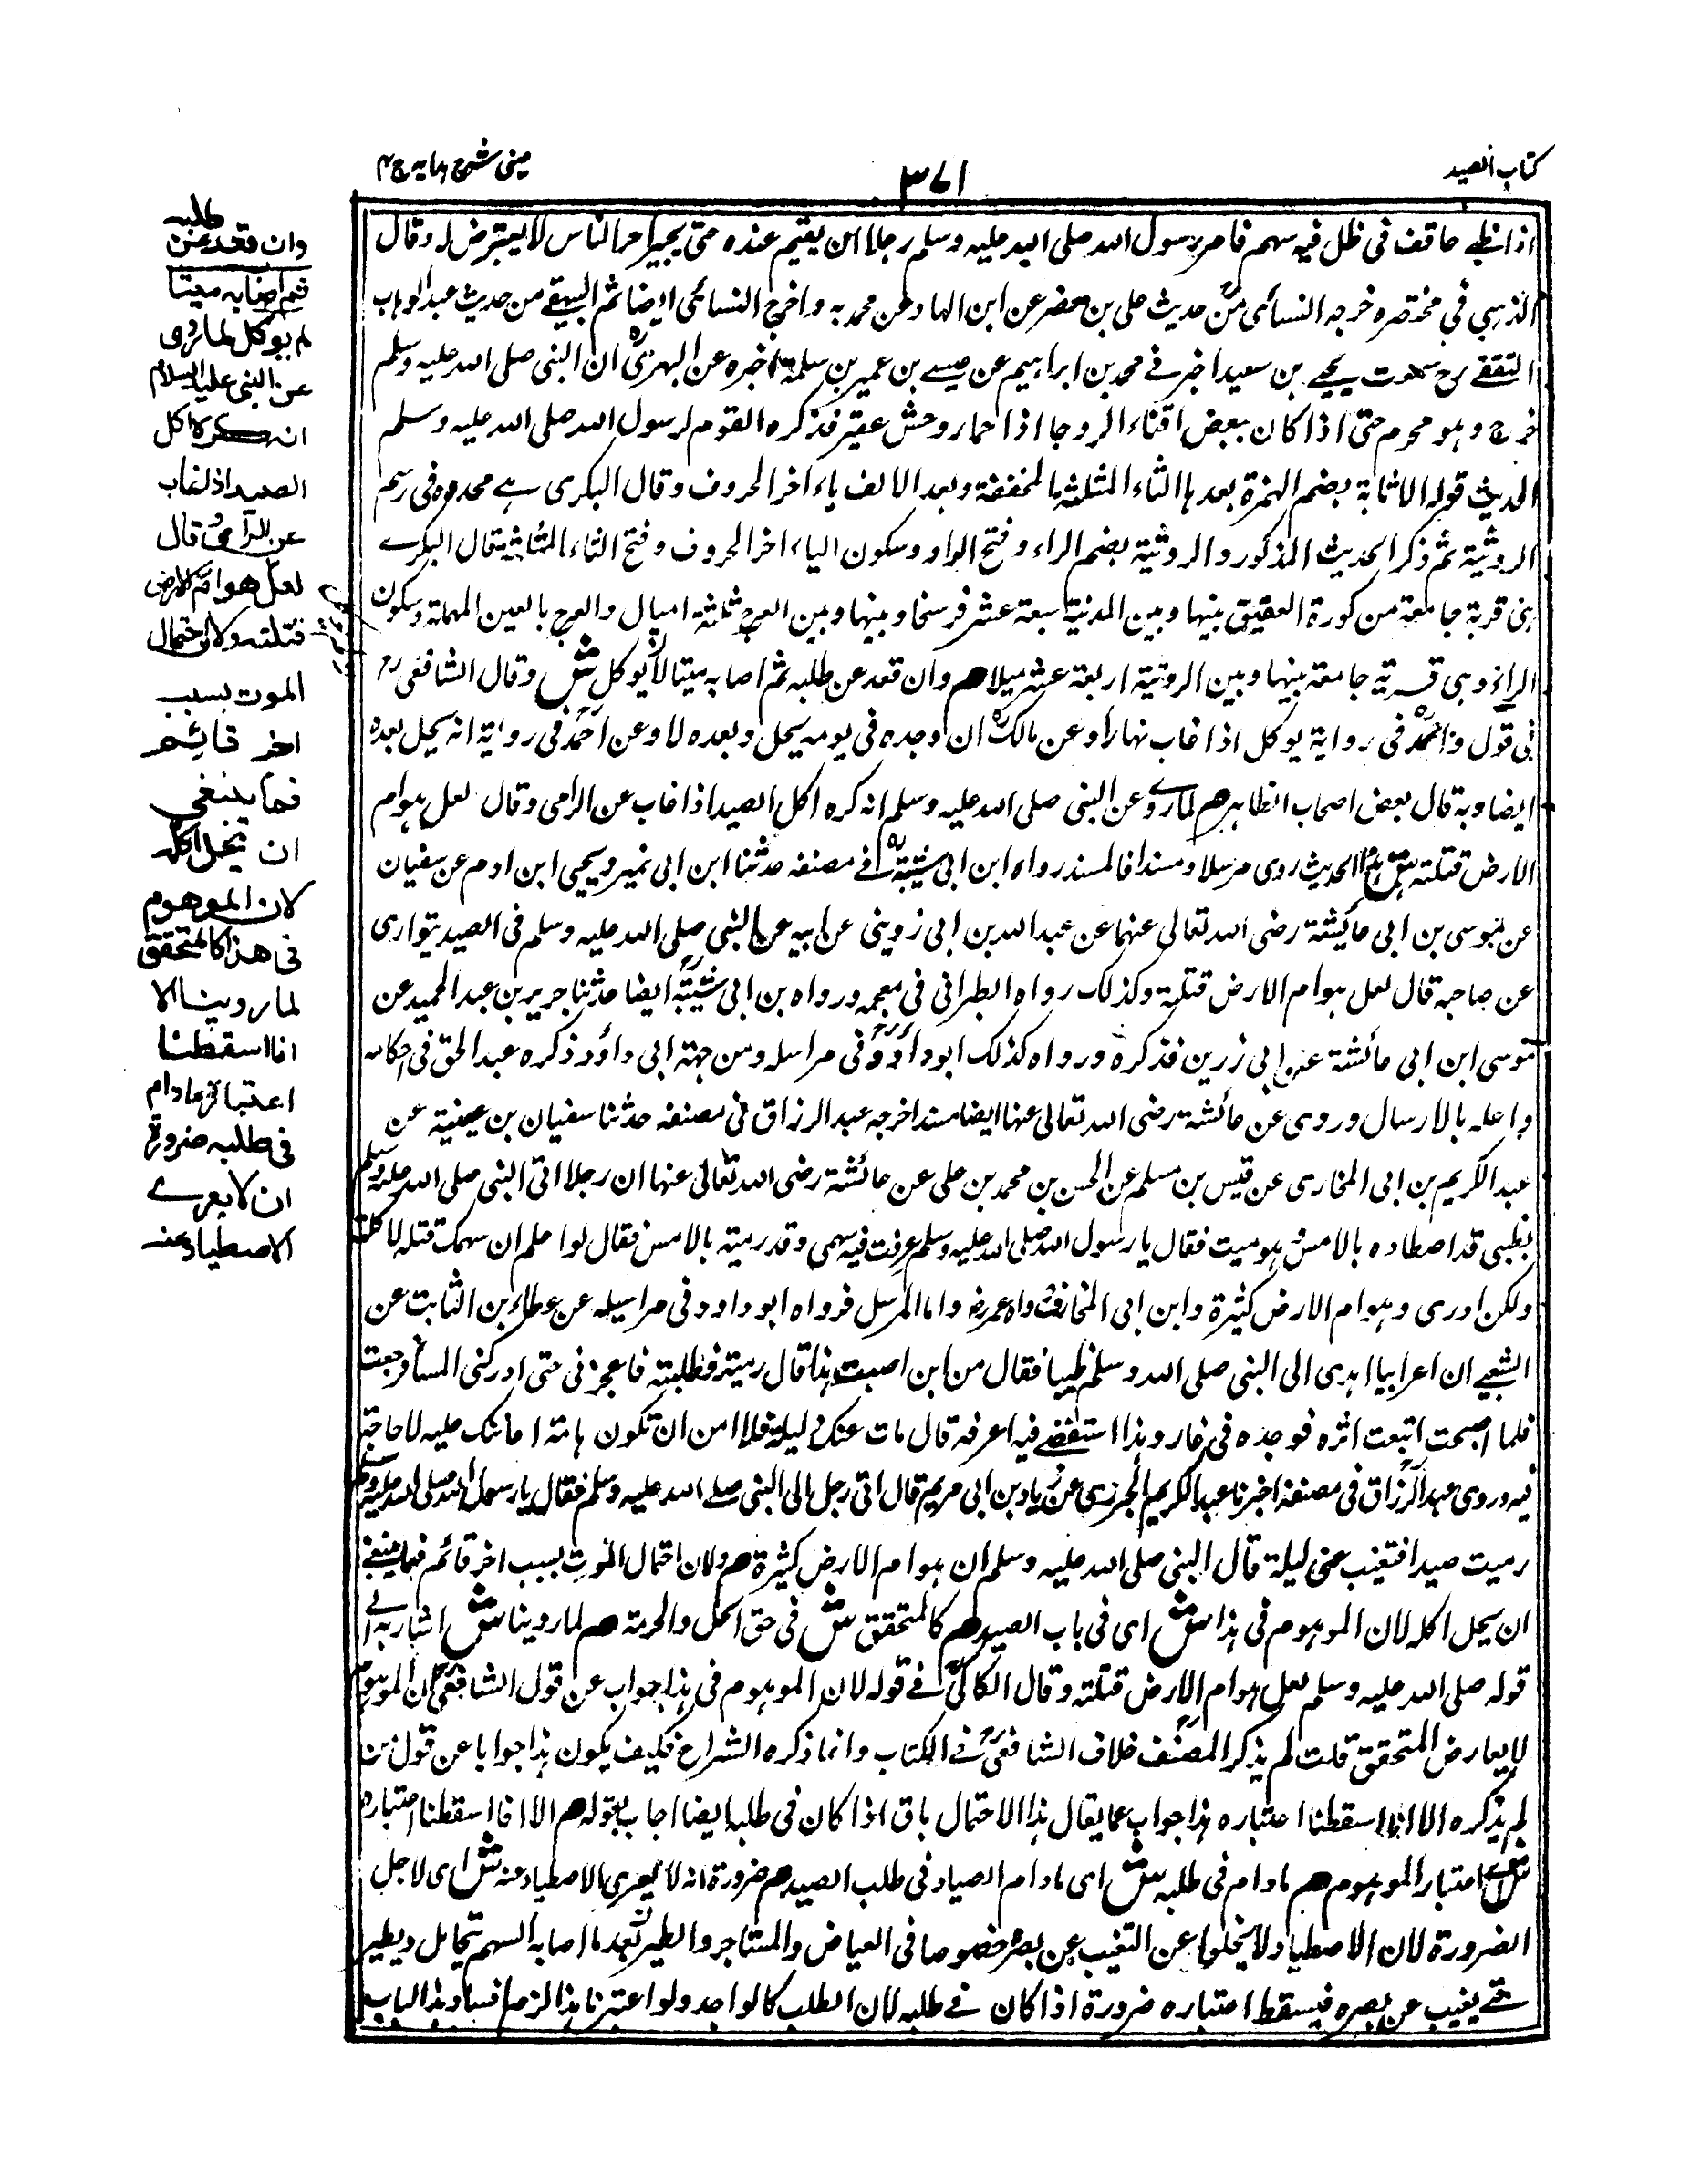 كتاب الصيد
٣٧١
عینی شرح ہدایہ ج ٤
اذا ظبي حاقف فی ظل فیه سهم فامر رسول الله صلی الله علیه وسلم رجلا ان یقیم عنده حتی یجیز احد الناس لا یعترض له وقال
الذهبی فی مختصره خرجه النسائی من حدیث علی بن عن ابن الهاد عن محمد به واخرج النسائی ایضا ثم البیهقی من حدیث عبد الوهاب
الثقفی سمعت یحیی بن سعید اخبرنی محمد بن ابراهیم عن عیسی بن عمیر بن سلمة اخبره عن البهزی ان النبی صلی الله علیه وسلم
خرج وهو محرم حتی اذا کان ببعض افناء الروحا اذا حمار وحش عقیر فذکره القوم لرسول الله صلی الله علیه وسلم
الحدیث قوله الاثایة بضم الهمزة بعدها الثاء المثلثة المخففة وبعد الالف یاء اخر الحروف وقال البکری هی محدوده فی رسم
الرویثة ثم ذکر الحدیث المذکور والرویثة بضم الراء وفتح الواو وسکون الیاء اخر الحروف وفتح الثاء المثلثة قال البکری
هی قریة جامعة من کورة العقیق بینها وبین المدینة سبعة عشر فرسخا وبینها وبین العرج ثلثة امیال والعرج بالعین المهملة وسکون
الراء وهی قریة جامعة بینها وبین الرویثة اربعة عشر میلا هم وان قعد عن طلبه ثم اصابه میتا لا یوکل ش وقال الشافعی رح
فی قول واحمد فی روایة یوکل اذا غاب نهارا وعن مالک ان وجده فی یومه یحل وبعده لا وعن احمد فی روایة انه یحل بعده
ایضا وبه قال بعض اصحاب الظاهر هم لما روی عن النبی صلی الله علیه وسلم انه کره اکل الصید اذا غاب عن الرامی وقال لعل هوام
الارض قتلته ش هذا الحدیث روی مرسلا ومسندا فالمسند رواه ابن ابی شیبة فی مصنفه حدثنا ابن ابی نمیر ویحیی ابن ادم عن سفیان
عن موسی بن ابی عائشة رضی الله تعالی عنها عن عبد الله بن ابی رزین عن ابیه عن النبی صلی الله علیه وسلم فی الصید یتواری
عن صاحبه قال لعل هوام الارض قتلته وکذلک رواه الطبرانی فی معجمه ورواه بن ابی شیبة ایضا حدثنا جریر بن عبد الحمید عن
موسی ابن ابی عائشة عن ابی رزین فذکره ورواه کذلک ابو داؤد فی مراسله ومن جهة ابی داؤد ذکره عبد الحق فی احکامه
واعله بالارسال وروی عن عائشة رضی الله تعالی عنها ایضا مسندا اخرجه عبد الرزاق فی مصنفه حدثنا سفیان بن عیینة عن
عبد الکریم بن ابی المخارق عن قیس بن مسلم عن الحسن بن محمد بن علی عن عائشة رضی الله تعالی عنها ان رجلا اتی النبی صلی الله علیه وسلم
بظبی قد اصطاده بالامس وهو میت فقال یا رسول الله صلی الله علیه وسلم عرفت فیه سهمی وقد رمیته بالامس فقال لو اعلم ان سهمک قتله لاکلته
ولکن ادری وهوام الارض کثیرة وابن ابی المخارق واما المرسل فرواه ابو داود فی مراسیله عن عطاء بن الثابت عن
الشعبی ان اعرابیا اهدی الی النبی صلی الله وسلم ظبیا فقال من این اصبت هذا قال رمیته فطلبته فاعجزنی حتی ادرکنی المساء فرجعت
فلما اصبحت اتبعت اثره فوجده فی غار وهذا فیه اعرفه قال مات عنک لیلة فلا امن ان تکون هامة اعانتک علیه لا حاجة
فیه وروی عبد الرزاق فی مصنفه اخبرنا عبد الکریم الجزری عن زیاد بن ابی مریم قال اتی رجل الی النبی صلی الله علیه وسلم فقال یا رسول الله صلی الله علیه وسلم
رمیت صیدا فتغیب عنی لیلة قال النبی صلی الله علیه وسلم ان هوام الارض کثیرة هم ولان احتمال الموت بسبب اخر قائم فما ینبغی
ان یحل اکله لان الموهوم فی هذا ش ای فی باب الصید هم کالمتحقق ش فی حق الحل والحرمة هم لما روینا ش اشار به الی
قوله صلی الله علیه وسلم لعل هوام الارض قتلته وقال الکاکی فی قوله لان الموهوم فی هذا جواب عن قول الشافعی ان الموهوم
لا یعارض المتحقق قلت لم یذکر المصنف خلاف الشافعی فی الکتاب وانما ذکره الشراح فکیف یکون هذا جوابا عن قول من
لم یذکره الا انا اسقطنا اعتباره هذا جواب عما یقال هذا الاحتمال باق اذا کان فی طلبه ایضا اجاب بقوله هم الا انا اسقطنا اعتباره
ش ای اعتبار الموهوم هم مادام فی طلبه ش ای مادام الصیاد فی طلب الصید هم ضرورة انه لا یعری الاصطیاد عنه ش ای لاجل
الضرورة لان الاصطیاد لا یخلوا عن التغیب عن بصره خصوصا فی الغیاض والمشاجر والطیر بعد ما اصابه السهم یتحامل ویطیر
حتی یغیب عن بصره فیسقط اعتباره ضرورة اذا کان فی طلبه لان الطلب کالواجد ولو اعتبرنا هذا لزم انسداد هذا الباب
وان قعد عن طلبه
ثم اصابه میتا
لم یوکل لما روی
عن النبی علیه السلام
انه کره اکل
الصید اذا غاب
عن الرامی وقال
لعل هوام الارض
قتلته ولان احتمال
الموت بسبب
اخر قائم
فما ینبغی
ان یحل اکله
لان الموهوم
فی هذا کالمتحقق
لما روینا الا
انا اسقطنا
اعتباره مادام
فی طلبه ضرورة
ان لا یعری
الاصطیاد عنه